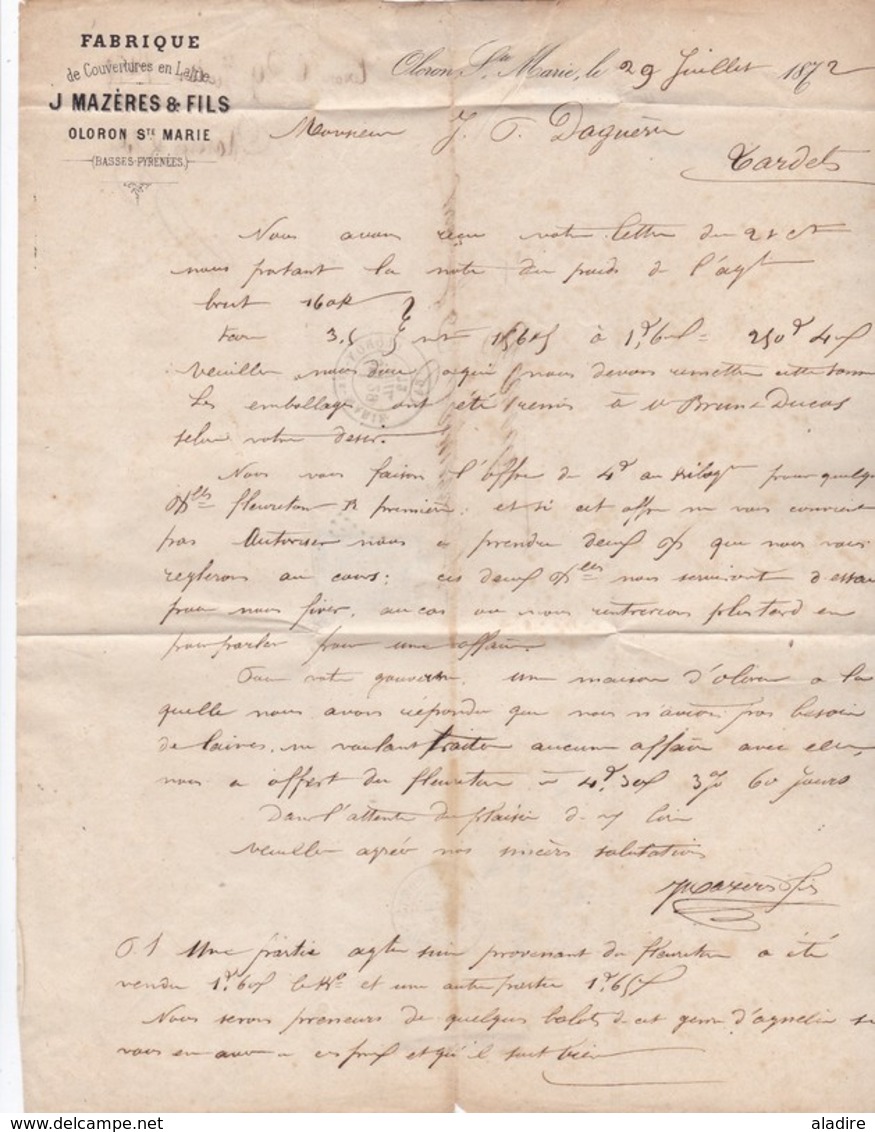 FABRIQUE
de Couvertures en Laine
J MAZÈRES & FILS
OLORON STE MARIE
(BASSES-PYRÉNÉES)
Oloron Ste Marie, le 29 Juillet 1872
Monsieur J. Daguerre
Tardets
Nous avons reçu votre lettre du
nous portant la note du poids de l'agt
brut 160
tare 3.5 à 1f60 = 250f40
veuillez nous dire à qui nous devons remettre cette somme
Les emballages ont été remis à Mr Brun Ducos
selon votre desir.
Nous vous faison l'offre de 4f au kilog pour quelq
Blles fleureton première; et si cet offre ne vous convient
pas Autoriser nous a prendre deux que nous vous
reglerons au cours: ces deux Blles nous serviront d'essai
pour nous fixer, au cas ou nous rentrerions plus tard en
pourparler pour une affaire.
Pour votre gouverne, une maison d'oloron a la
quelle nous avons répondu que nous n'avions pas besoin
de laines, ne voulant traiter aucune affaire avec elle,
nous a offert du fleureton à 4f30 3% 60 jours
Dans l'attente du plaisir de vs lire
veuillez agréer nos sincères salutations
Mazères & fils
P.S Une partie agt provenant du fleureton a été
vendu 1f60 le Ko et une autre partie 1f65
Nous serons preneurs de quelques balots de cet genre d'agnelin si
vous en avez a ces prix et qu'il soit bien
aladire